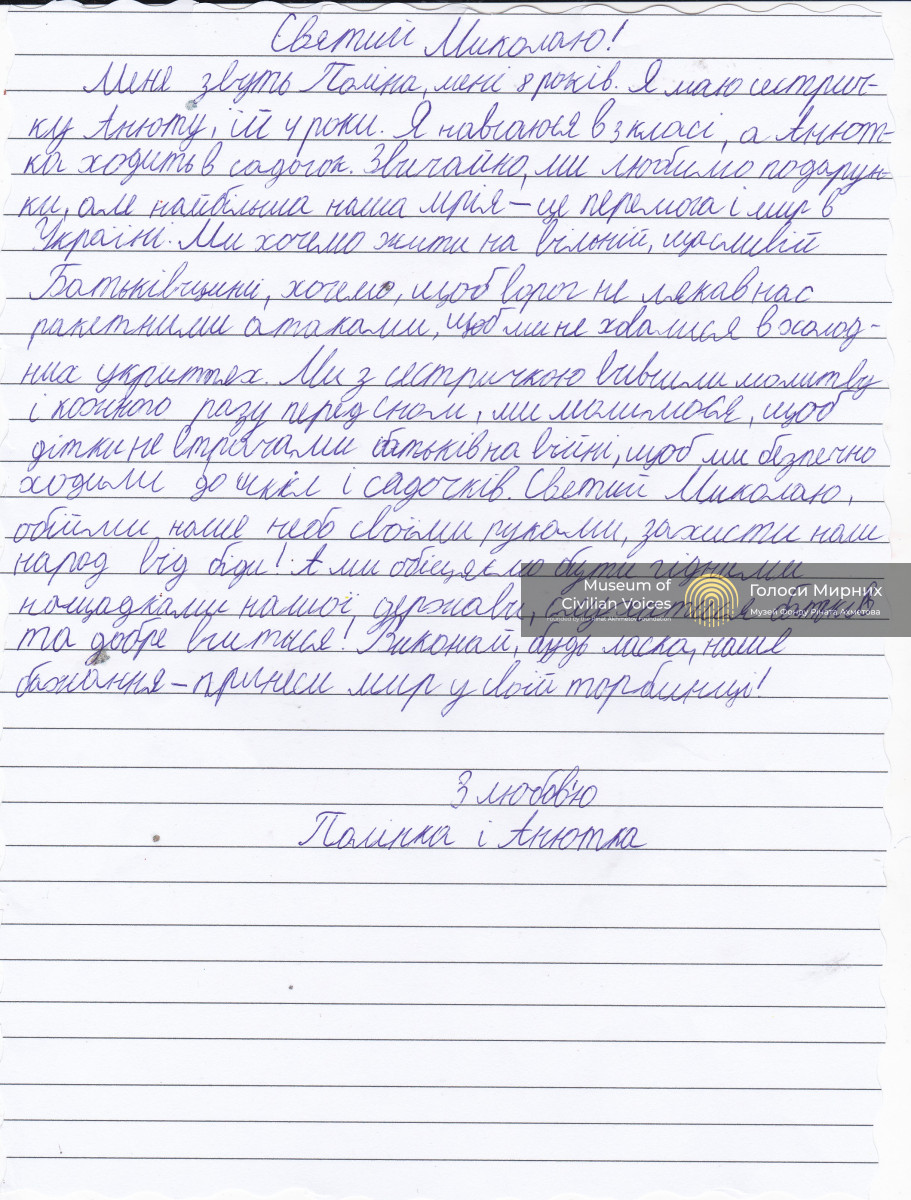 Святий Миколаю!
Мене звуть Поліна, мені 8 років. Я маю сестрич-
ку Анюту, їй 4 роки. Я навчаюся в 3 класі, а Анют-
ка ходить в садочок. Звичайно, ми любимо подарун-
ки, але найбільша наша мрія – це перемога і мир в
Україні. Ми хочемо жити на вільній, щасливій
Батьківщині, хочемо, щоб ворог не лякав нас
ракетними атаками, щоб ми не ховалися в холод-
них укриттях. Ми з сестричкою вивчили молитву
і кожного разу перед сном, ми молимося, щоб
дітки не втрачали батьків на війні, щоб ми безпечно
ходили до шкіл і садочків. Святий Миколаю,
обійми наше небо своїми руками, захисти наш
народ від біди! А ми обіцяємо бути гідними
нащадками нашої держави, батьків
та добре вчиться! Виконай, будь ласка, наше
бажання – принеси мир у своїй торбинці!
З любов'ю
Полінка і Анютка
Museum of
Civilian Voices
Founded by the Rinat Akhmetov Foundation
Голоси Мирних
Музей Фонду Ріната Ахметова